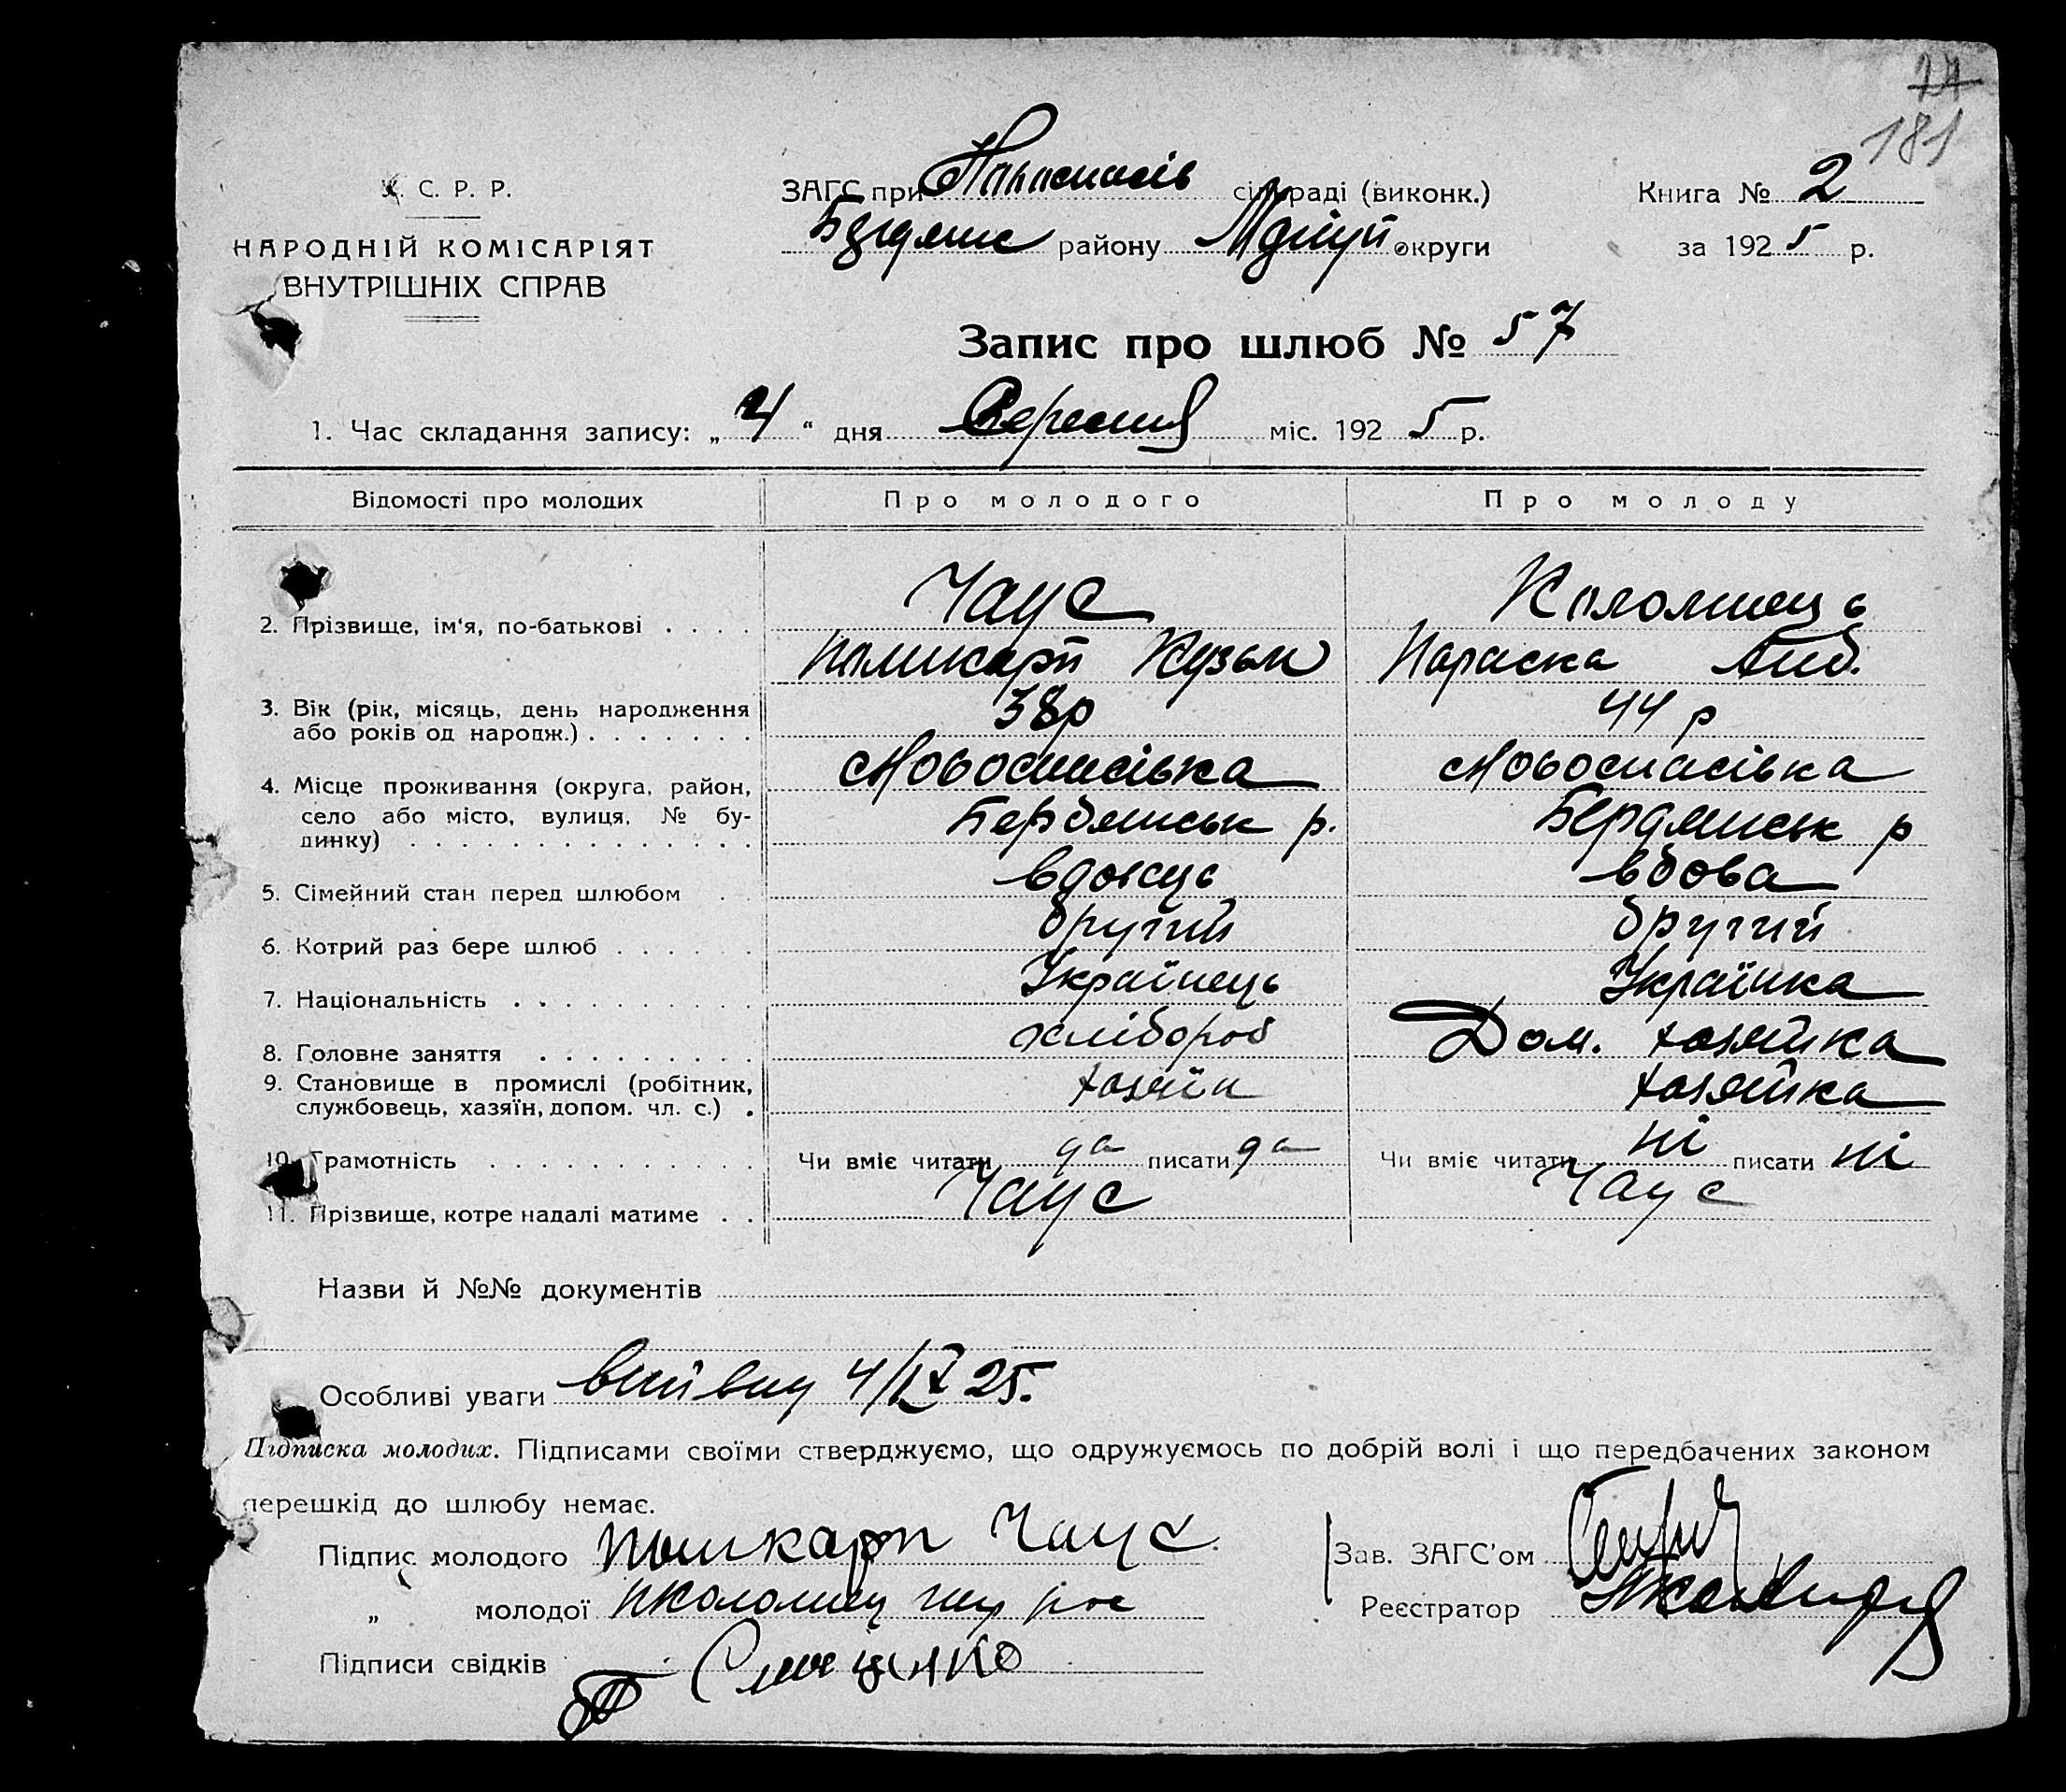 77
181
У. С. Р. Р.
НАРОДНІЙ КОМІСАРІЯТ
ВНУТРІШНІХ СПРАВ
ЗАГС при сільраді (виконк.)
району округи
Книга № 2
за 1925 р.
Запис про шлюб № 57
1. Час складання запису: „ 4 “ дня Вересня міс. 1925 р.
Відомості про молодих Про молодого Про молоду
2. Прізвище, ім'я, по-батькові . . . . Чаус Коломиець
Поликарп Кузьм Параска Анд.
3. Вік (рік, місяць, день народження
або років од народж.) . . . . . . . 38р 44 р
4. Місце проживання (округа, район, Новоспасівка Новоспасівка
село або місто, вулиця, № бу-
динку) . . . . . . . . . . . . . . Бердянськ р. Бердянськ р
5. Сімейний стан перед шлюбом . . вдовець вдова
6. Котрий раз бере шлюб . . . . . . другий другий
7. Національність . . . . . . . . . . Українець Українка
8. Головне заняття . . . . . . . . . хлібороб Дом. хозяйка
9. Становище в промислі (робітник,
службовець, хазяїн, допом. чл. с.) . хозяїн хозяйка
10. Грамотність . . . . . . . . . . . Чи вміє читати да писати да Чи вміє читати ні писати ні
11. Прізвище, котре надалі матиме . . Чаус Чаус
Назви й №№ документів
Особливі уваги 4/IX 25.
Підписка молодих. Підписами своїми стверджуємо, що одружуємось по добрій волі і що передбачених законом
перешкід до шлюбу немає.
Підпис молодого Поликарп Чаус.
„ молодої
Підписи свідків
Зав. ЗАГС'ом
Реєстратор